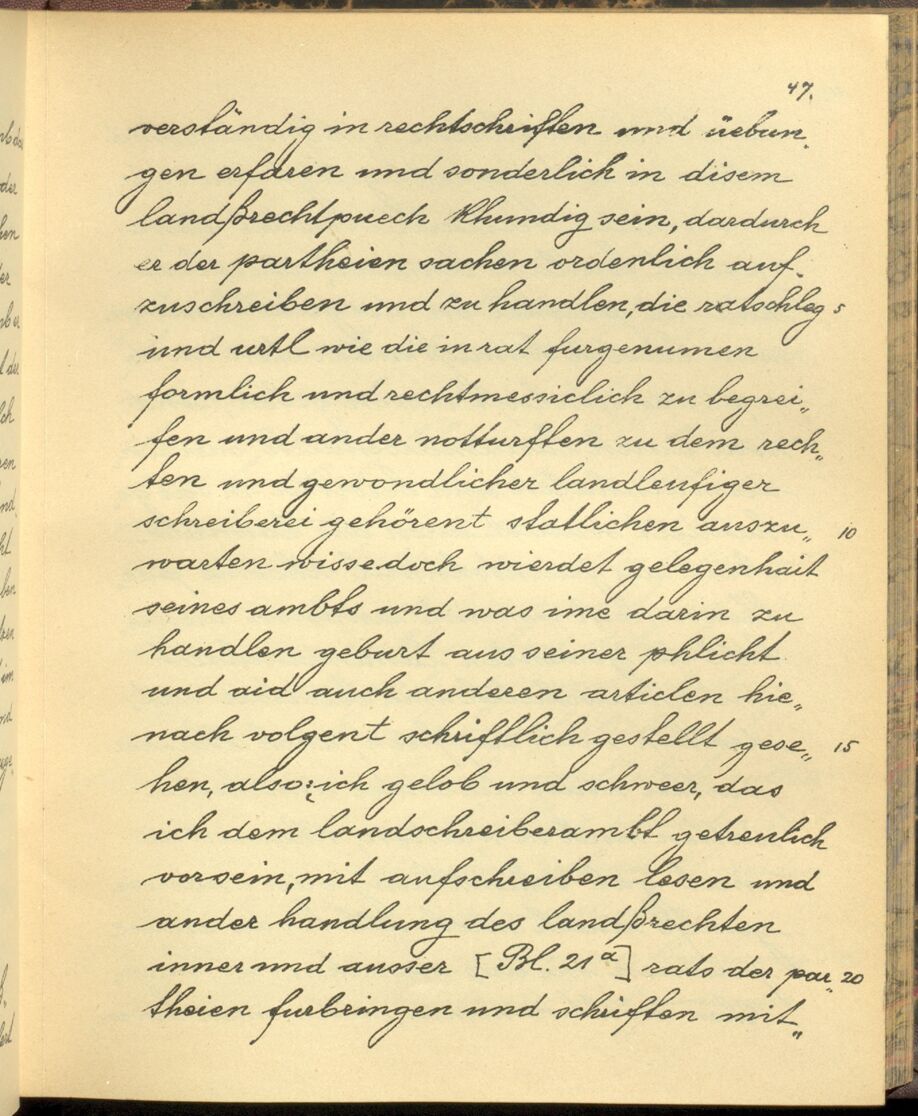 47.
verständig in rechtschriften und üebun„
gen erfaren und sonderlich in disem
landßrechtpuech khundig sein, dardurch
er der partheien sachen ordenlich auf„
zuschreiben und zu handlen, die ratschleg 5
und urtl wie die in rat furgenumen
formlich und rechtmessiclich zu begrei„
fen und ander notturften zu dem rech„
ten und gewondlicher landleufiger
schreiberei gehörent statlichen auszu„ 10
warten wisse doch wierdet gelegenhait
seines ambts und was ime darin zu
handlen geburt aus seiner phlicht
und aid auch anderen articlen hie„
nach volgent schriftlich gestellt gese„ 15
hen, also: ich gelob und schweer, das
ich dem landschreiberambt getreulich
vorsein, mit aufschreiben lesen und
ander handlung des landßrechten
inner und ausser [Bl. 21a] rats der par„ 20
theien furbringen und schriften mit„